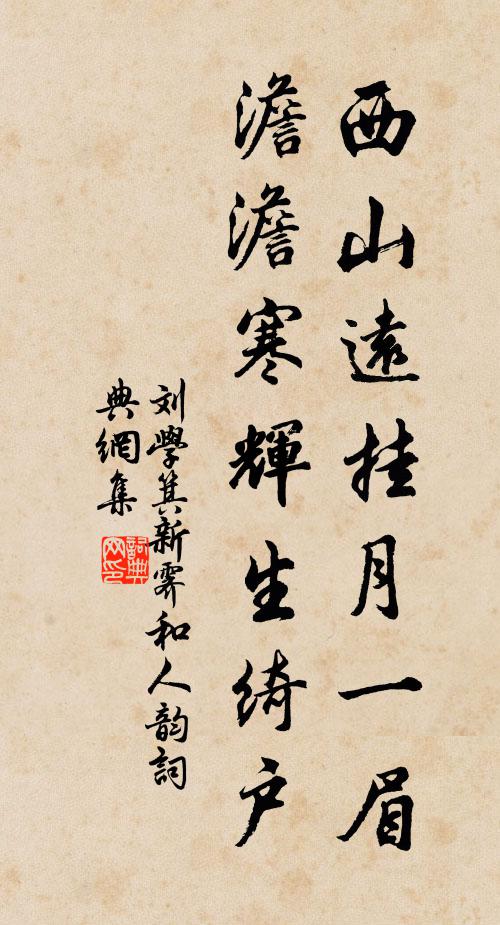 西山遠挂月一眉
澹澹寒輝生綺户
刘學箕新霽和人韵詞
典網集
詞典
网印